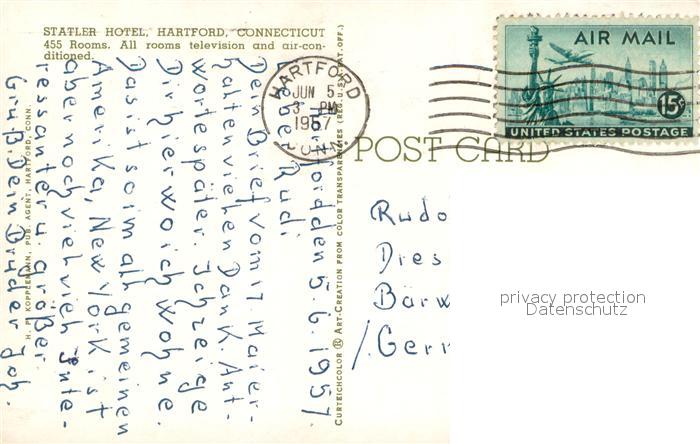 STATLER HOTEL, HARTFORD, CONNECTICUT
455 Rooms. All rooms television and air-con-
ditioned.
Hardfordden 5.6.1957.
Lieber Rudi
Den Brief vom 17. Mai er-
halten vielen Dank. Ant-
worte später. Ich zeige
Dir hier wo ich wohne.
Das ist so im allgemeinen
Amerika, New York ist
aber noch viel viel inte-
ressanter u. größer
Gruß Dein Bruder Joh.
H. P. KOPPLEMANN, PUB. AGENT, HARTFORD, CONN.
CURTEICHCOLOR ® ART-CREATION FROM COLOR TRANSPARENCIES (REG. U.S. PAT. OFF.)
HARTFORD
JUN 5
3 PM
1957
CONN.
AIR MAIL
15¢
UNITED STATES POSTAGE
POST CARD
Rudo
Dres
Barw
/Gerr
privacy protection
Datenschutz